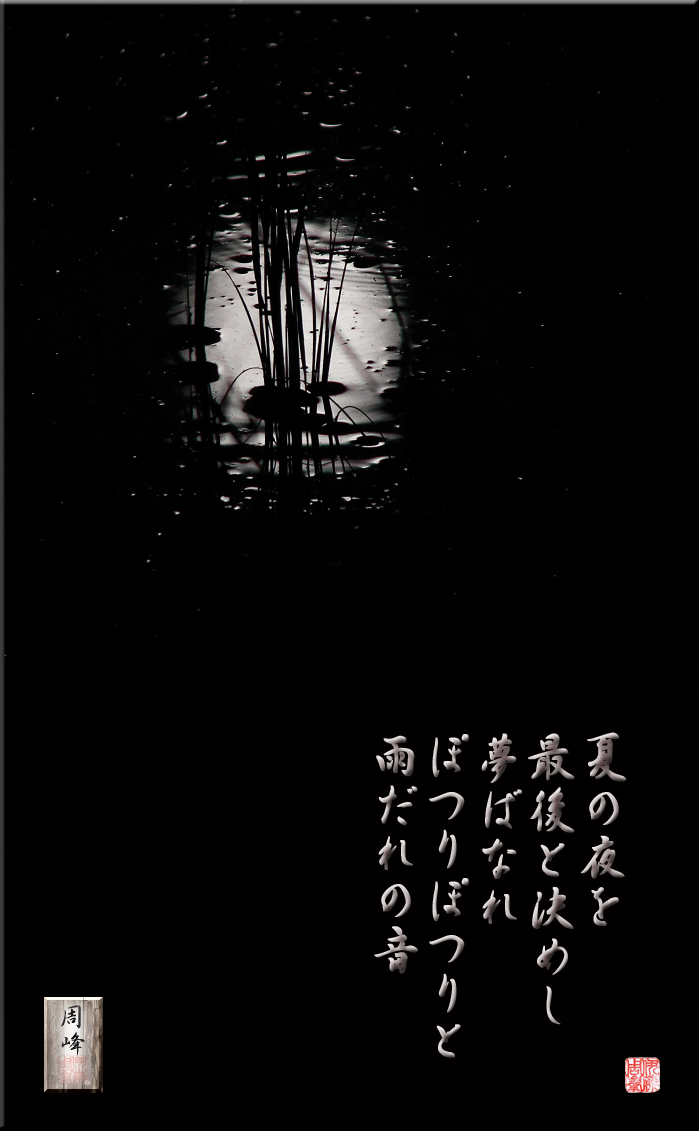 夏の夜を
最後と決めし
夢ばなれ
ぽつりぽつりと
雨だれの音
周峰